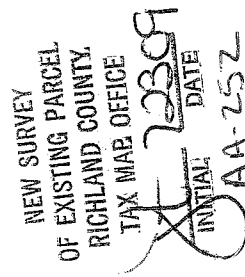 NEW SURVEY
OF EXISTING PARCEL
RICHLAND COUNTY
TAX MAP OFFICE
72309
INITIAL DATE
AA-252